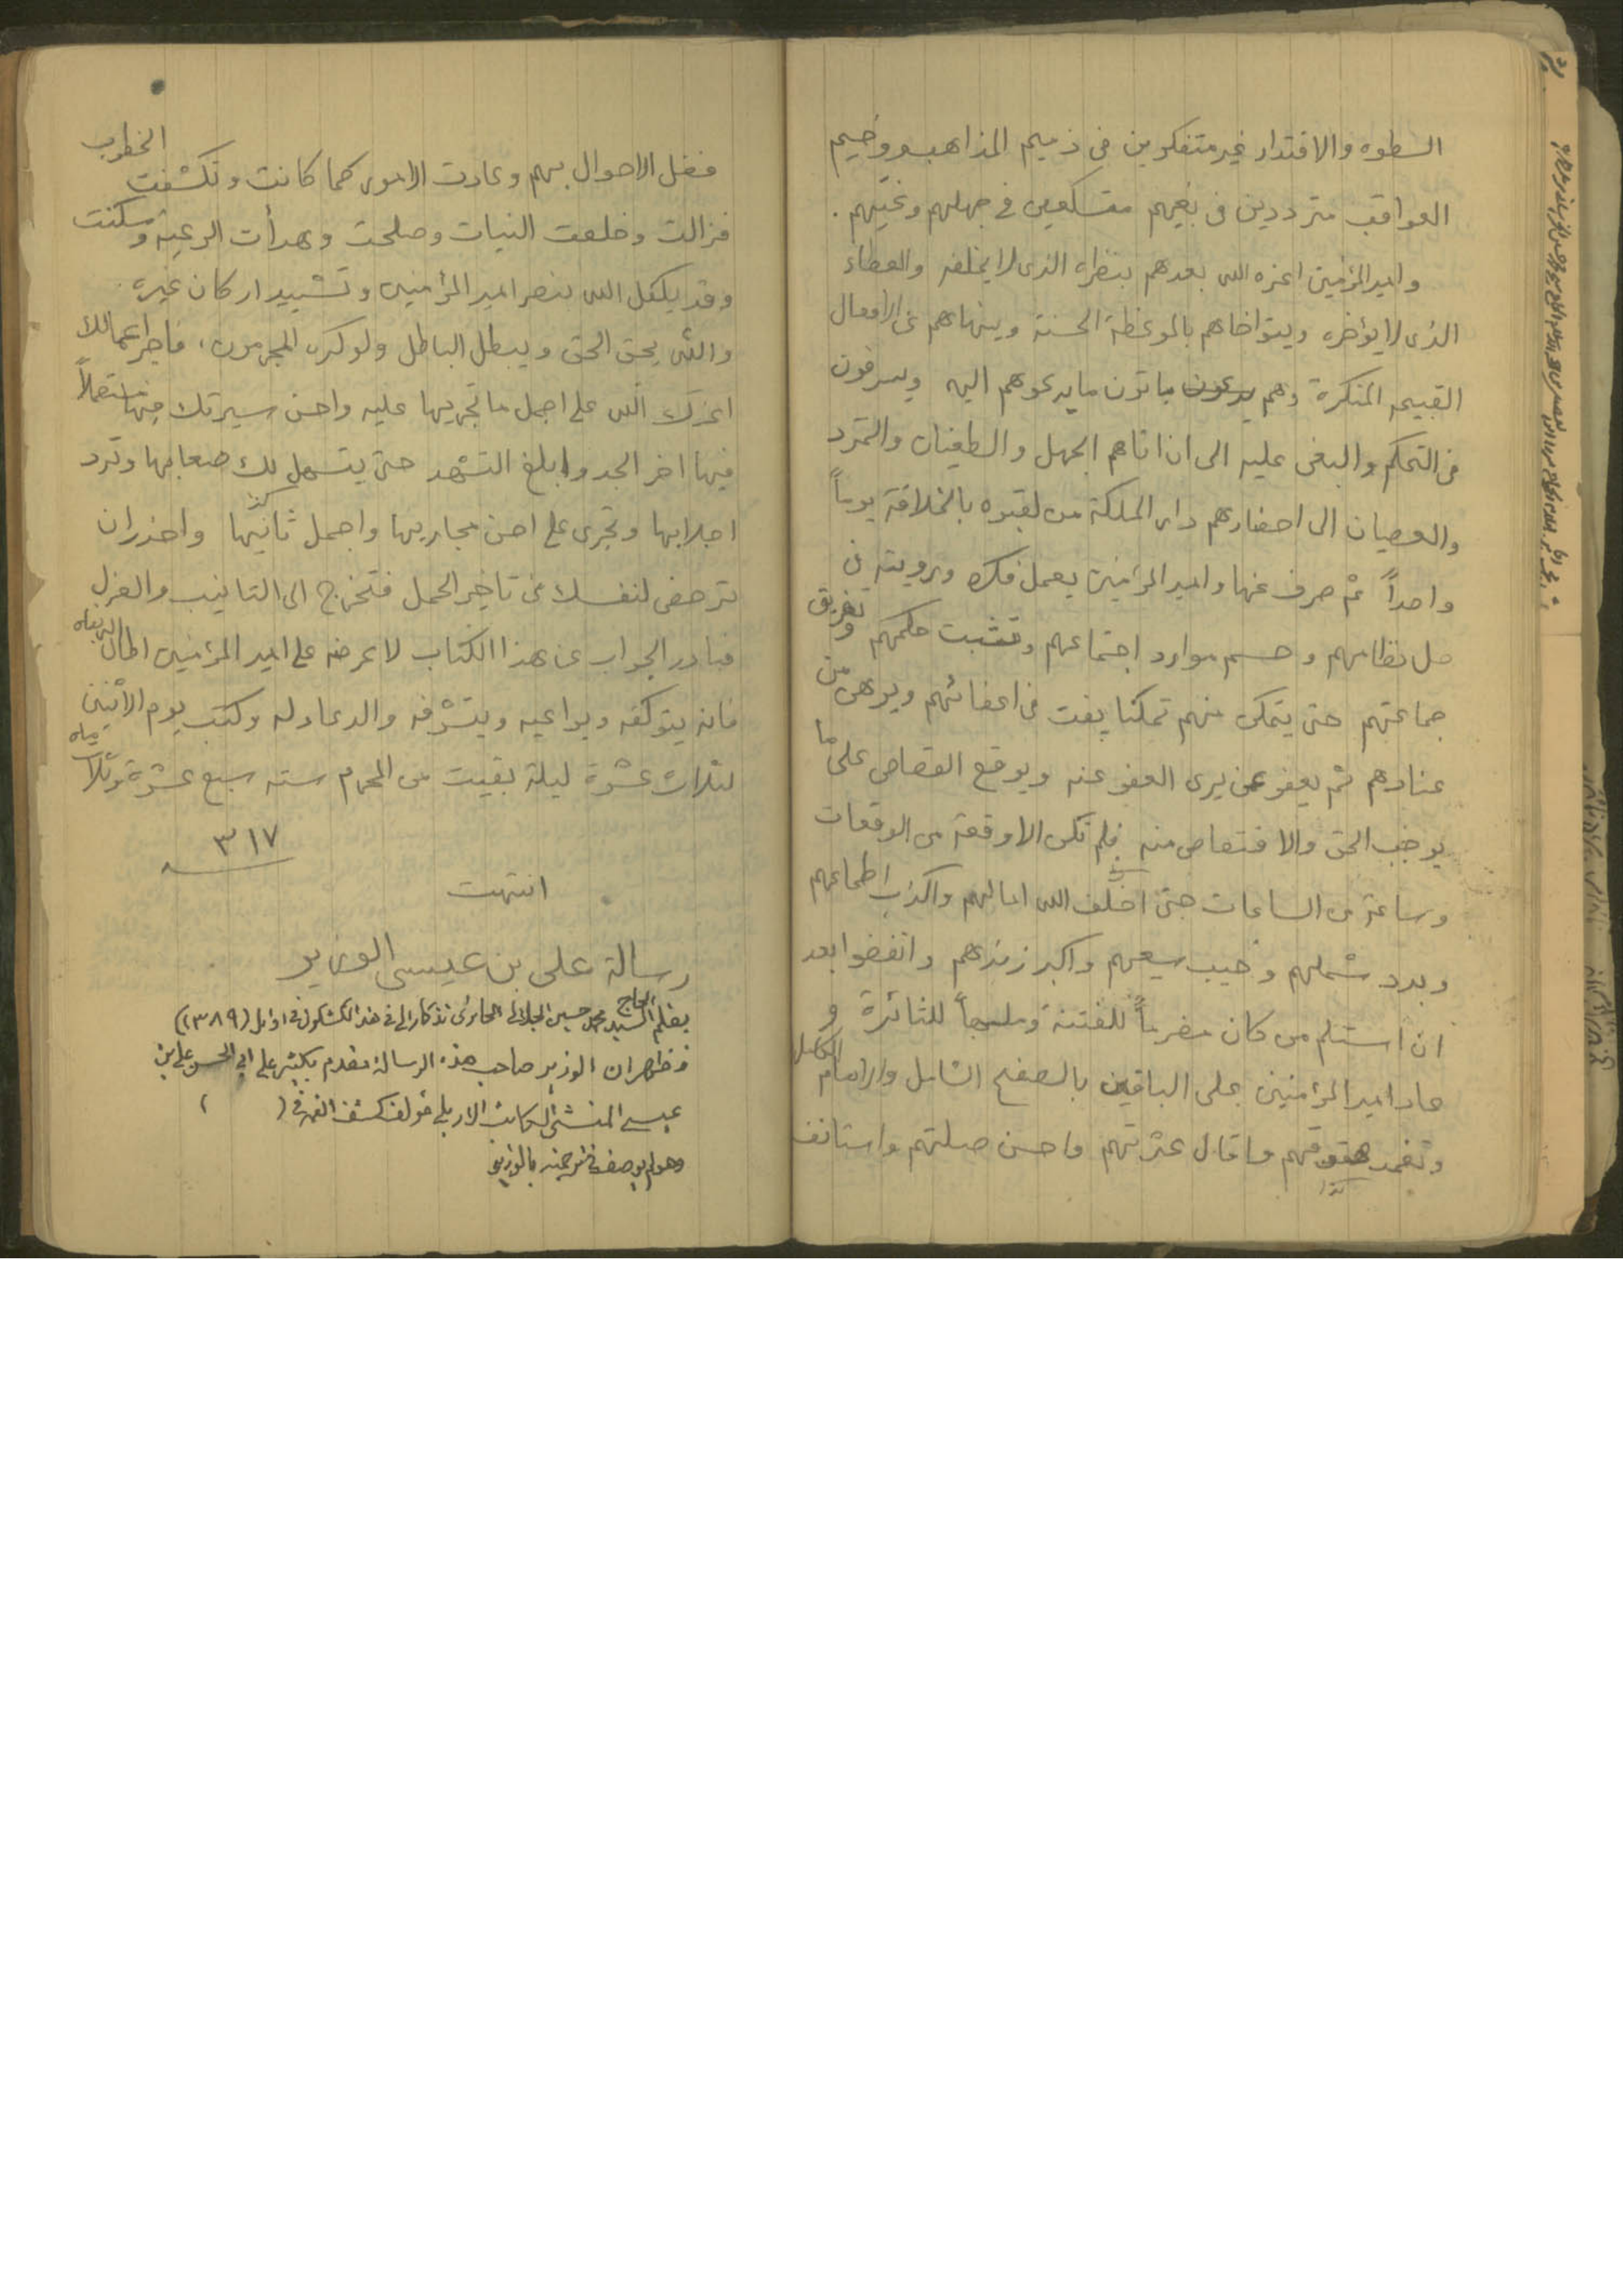 السطوه والاقتدار غير متفكرين في ذميم المذاهب ووخيم
العواقب مترددين في بغيهم متسكعين في جهلهم وغيّهم .
وامير المؤمنين اعزه الله بعدهم بنظراه الذى لا يخلفه والعطاء
الذى لا يؤخره ويتواخاهم بالموعظة الحسنة وينهاهم عن الافعال
القبيحه المنكرة وهم ياتون ما يدعوهم اليه ويسرفون
فى التحكم والبغى عليه الى ان اتاهم الجهل والطغيان والتمرد
والعصيان الى احضارهم دار المملكة من لقبوه بالخلافة يوماً
واحداً ثم صرف عنها وامير المؤمنين يعمل فكره ورويته في
حل نظامهم وحسم موارد اجتماعهم وتشبت حكمهم وتفريق
جماعتهم حتى يتمكن منهم تمكنا يفت فى اعضائهم ويوهى من
عنادهم ثم يعفو عمن يرى العفو عنه ويوقع القصاص على ما
يوجب الحق والاقتصاص منه فلم تكن الا وقعة من الوقعات
وساعة من الساعات حتى اخلف الله امالهم واكذب اطماعهم
وبدد شملهم وخيب سعيهم واكبر زندهم وانفضوا بعد
ان استلم من كان مضرماً للفتنة وملهجاً للثائرة و
عاد امير المؤمنين على الباقين بالصفح الشامل والانعام الكامل
وتغمد هفوتهم واقال عثرتهم واحسن صلتهم واستانف
فضل الاحوال بهم وعادت الامور كما كانت وتكشفت الخطوب
فزالت وخلعت النيات وصلحت وهدأت الرعية وسكنت
وقد يكفل الله بنصر امير المؤمنين وتشييد اركان غيره .
والله يحق الحق ويبطل الباطل ولو كره المجرمون ، فاجر اعمالك
اعزك الله على اجمل ما تجريها عليه واحسن سيرتك فيها مستعملاً
فيها اخر الجد وابلغ التشهد حتى يتسهل لك صعابها وتردد
اجلابها وتجرى على احسن مجاريها واجمل ثانيها واحذر ان
ترخص لنفسك في تاخير الحمل فتخرج الى التانيب والعزل
فبادر الجواب عن هذا الكتاب لاعرضه على امير المؤمنين اطال الله بقاه
فانه يتوكفه ويراعيه ويتشرفه والدعاء له وكتب يوم الاثنين
لثلاث عشرة ليلة بقيت من المحرم سنه سبع عشرة وثلاثمائه
٣١٧
انتهت
رسالة على بن عيسى الوزير
بقلم الحاج السيد محمد حسين الجلالى الحائرى تذكارا لى فى هذا الكشكول فى اوايل (١٣٨٩)
فظهر ان الوزير صاحب هذه الرسالة مقدم بكثير على ابي الحسن على بن
عيسى المنشئ الكاتب الاربلى مؤلف كشف الغمة فى ( )
وهو لم يوصف فى ترجمته بالوزير